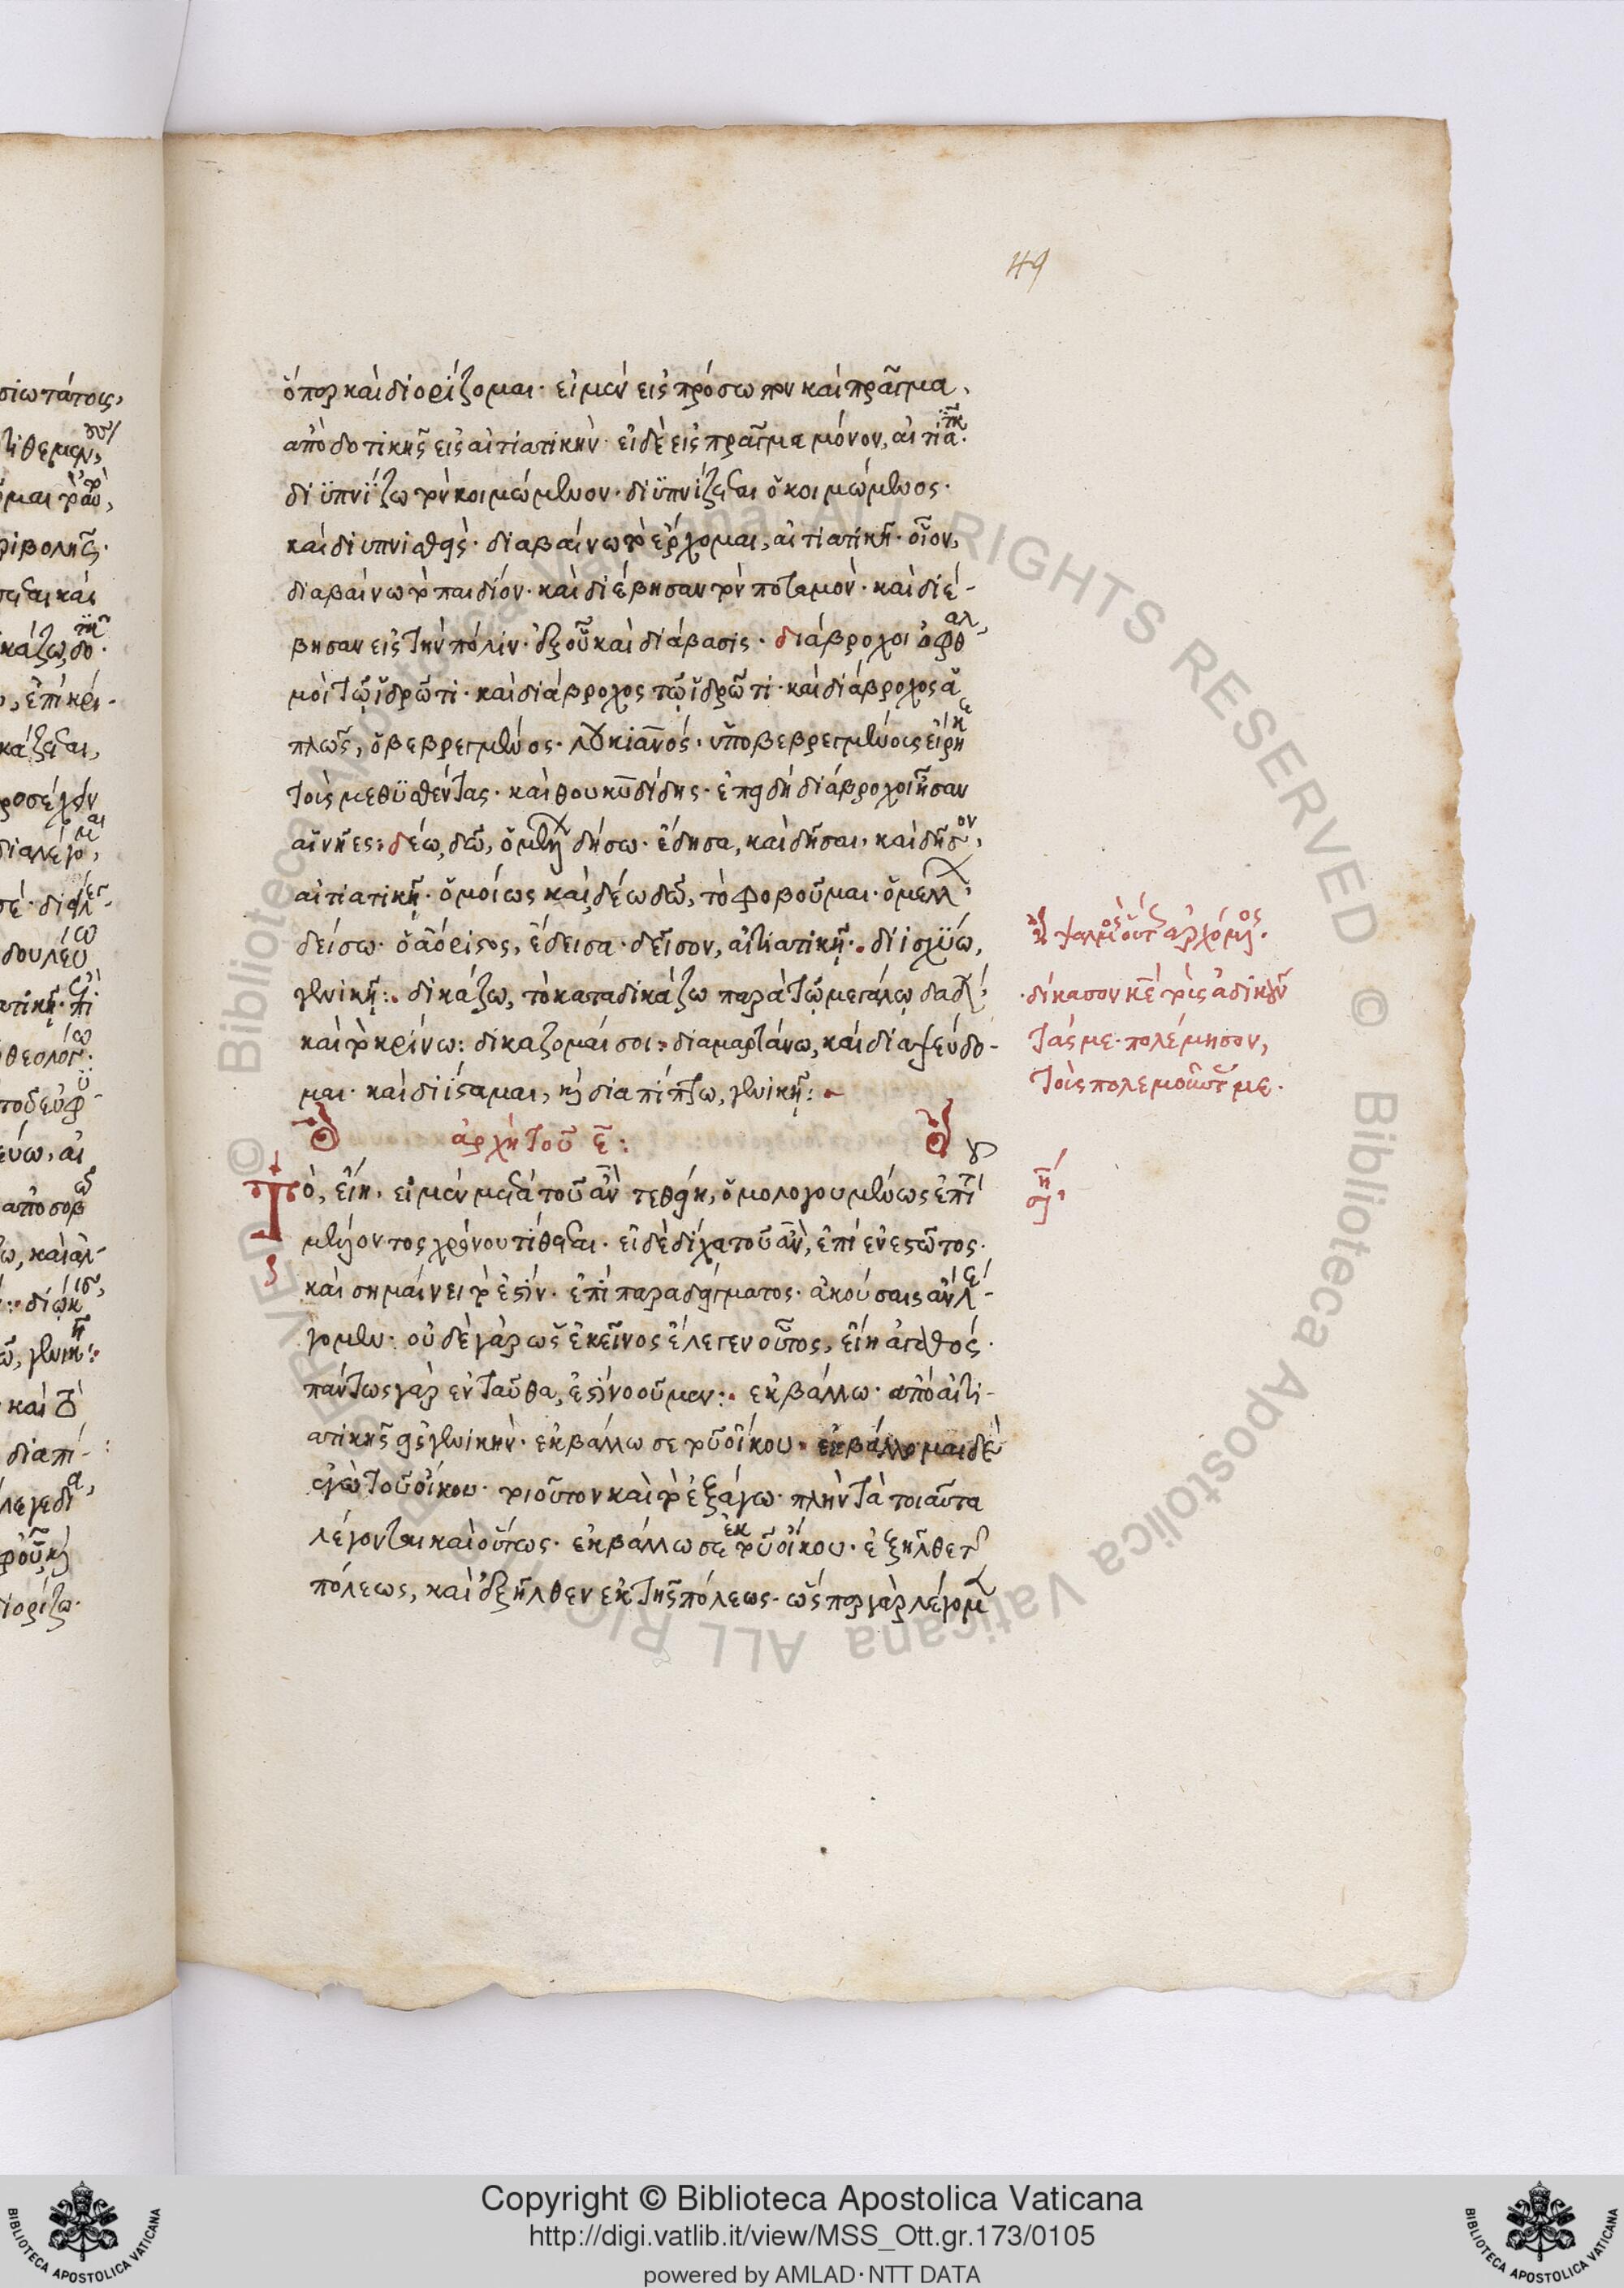 49
ὅπερ καὶ διορίζομαι· εἰ μὲν εἰς πρόσωπον καὶ πρᾶγμα,
ἀπὸ δοτικῆς εἰς αἰτιατικήν· εἰ δὲ εἰς πρᾶγμα μόνον, αἰτιατικῇ.
διϋπνίζω τὸν κοιμώμενον· διϋπνίζεται ὁ κοιμώμενος·
καὶ διυπνισθείς· διαβαίνω τὸ ἔρχομαι, αἰτιατικῇ· οἷον,
διαβαίνω τὸ παιδίον· καὶ διέβησαν τὸν ποταμόν· καὶ διέ-
βησαν εἰς τὴν πόλιν· ἐξ οὗ καὶ διάβασις· διάβροχοι ὀφθαλ
μοὶ τῷ ἱδρῶτι· καὶ διάβροχος τῷ ἱδρῶτι· καὶ διάβροχος ἁ
πλῶς, ὁ βεβρεγμένος· λουκιανός· ὑποβεβρεγμένοις εἴρηκε
τοὺς μεθυσθέντας· καὶ θουκυδίδης· ἐπειδὴ διάβροχοι ἦσαν
αἱ νῆες: δέω, δῶ, ὁ μέλλων δήσω· ἔδησα, καὶ δῆσαι· καὶ δῆσον,
αἰτιατικῇ· ὁμοίως καὶ δέω δῶ, τὸ φοβοῦμαι· ὁ μέλλων,
δείσω· ὁ ἀόριστος, ἔδεισα· δεῖσον, αἰτιατικῇ:· διϊσχύω,
γενικῇ:· δικάζω, τὸ καταδικάζω παρὰ τῷ μεγάλῳ δαδ,
καὶ τὸ κρίνω: δικάζομαί σοι: διαμαρτάνω, καὶ διαψεύδο-
μαι· καὶ διίσταμαι, καὶ διαπίπτω, γενικῇ:
ψαλμὸς οὕτως ἀρχόμενος·
δίκασον κε τοὺς ἀδικοῦν
τάς με· πολέμησον,
τοὺς πολεμοῦντάς με.
ἀρχὴ τοῦ ε:
Τὸ, εἴη, εἰ μὲν μετὰ τοῦ ἂν τεθείη, ὁμολογουμένως ἐπὶ
μέλλοντος χρόνου τίθεται· εἰ δὲ δίχα τοῦ ἂν, ἐπὶ ἐνεστῶτος·
καὶ σημαίνει τὸ ἐστίν· ἐπὶ παραδείγματος· ἀκούσαις ἂν λέ-
γομεν· οὐδὲ γὰρ ὡς ἐκεῖνος ἔλεγεν οὗτος, εἴη ἀγαθός·
πάντως γὰρ ἐνταῦθα, ἐστὶ νοοῦμεν:· ἐκβάλλω· ἀπὸ αἰτι-
ατικῆς εἰς γενικήν· ἐκβάλλω σε τοῦ οἴκου· ἐκβάλλομαι δὲ
ἐγὼ τοῦ οἴκου· τοιοῦτον καὶ τὸ ἐξάγω· πλὴν τὰ τοιαῦτα
λέγονται καὶ οὕτως· ἐκβάλλω σε ἐκ τοῦ οἴκου· ἐξῆλθε τῆς
πόλεως, καὶ ἐξῆλθεν ἐκ τῆς πόλεως· ὥσπερ γὰρ λέγομεν
Copyright © Biblioteca Apostolica Vaticana
http://digi.vatlib.it/view/MSS_Ott.gr.173/0105
powered by AMLAD·NTT DATA